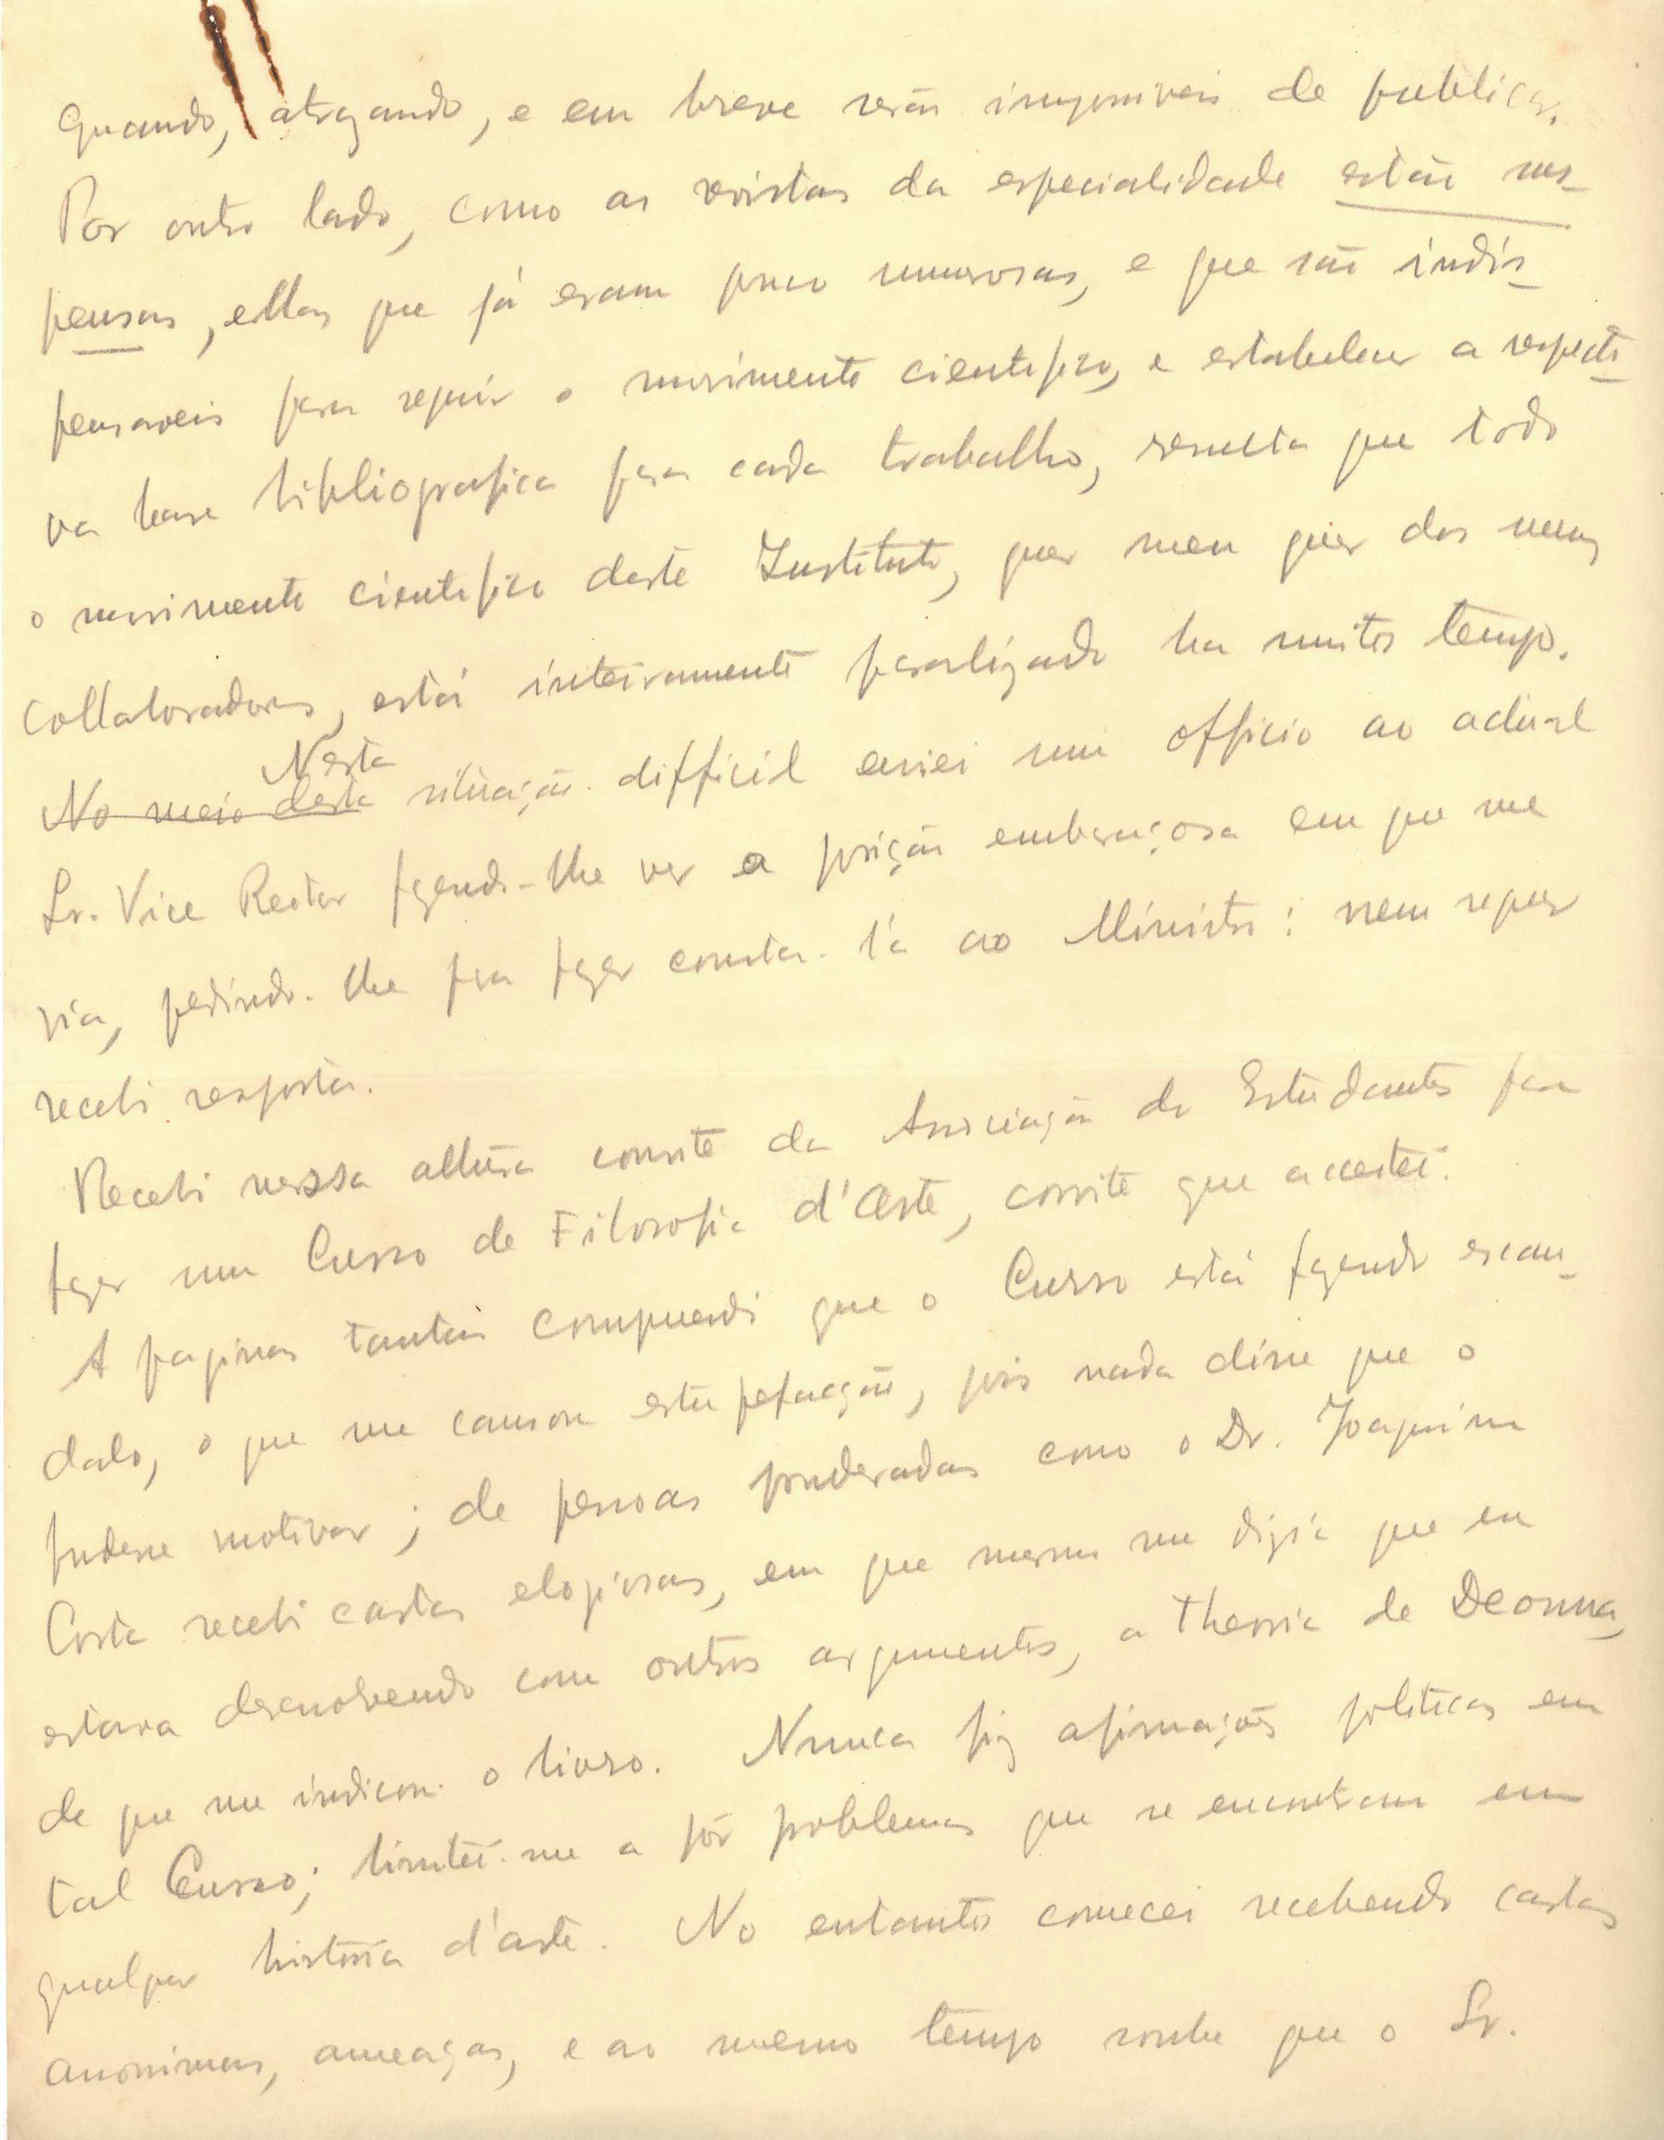 quando, atrazando, e em breve serão impossiveis de publicar.
Por outro lado, como as revistas da especialidade estão sus-
pensas, ellas que já eram pouco numerosas, e que são indis-
pensaveis para seguir o movimento cientifico, e estabelecer a respecti-
va base bibliografica para cada trabalho, resulta que todo
o movimento cientifico deste Instituto, quer meu quer dos meus
collaboradores, está inteiramente paralizado ha muito tempo.
No meio desta Nesta situação difficil enviei um officio ao actual
Sr. Vice Reitor fazendo-lhe ver a posição embaraçosa em que me
via, pedindo-lhe para fazer constar lá ao Ministro: nem sequer
recebi resposta.
Recebi nessa altura convite da Associação de Estudantes para
fazer um Curso de Filosofia d'Arte, convite que acceitei.
A paginas tantas comprendi que o Curso está fazendo escan-
dalo, o que me causou estupefacção, pois nada disse que o
pudesse motivar; de pessoas ponderadas como o Dr. Joaquim
Costa recebi cartas elogiosas, em que mesmo me dizia que eu
estava desenvolvendo com outros argumentos, a theoria de Deonna,
de que me indicou o livro. Nunca fiz afirmações politicas em
tal Curso; limitei-me a pôr problemas que se encontram em
qualquer historia d'arte. No entanto comecei recebendo cartas
anonimas, ameaças, e ao mesmo tempo soube que o Sr.